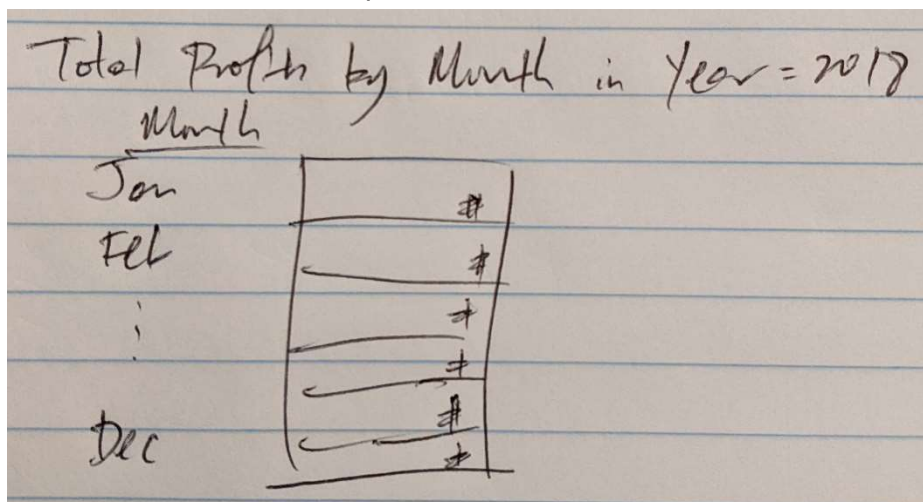 Total Profit by Month in Year = 2018
Month
Jan #
Feb #
⋮ #
#
#
Dec #